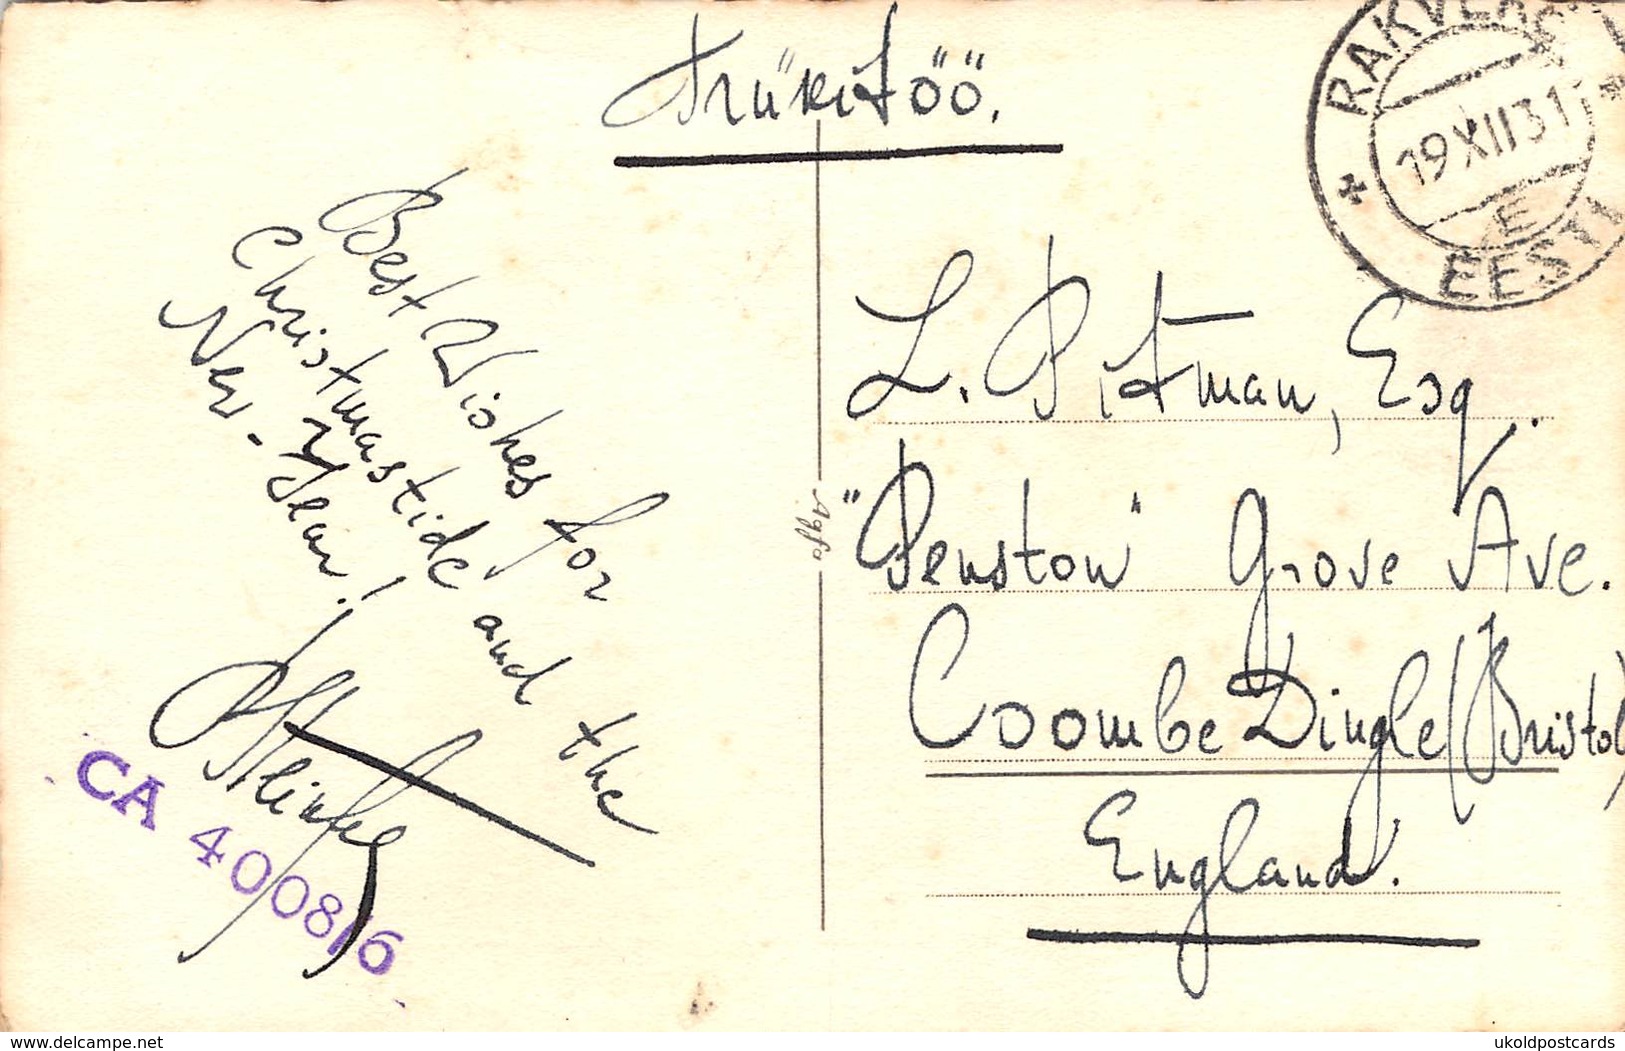 Trükitöö.
RAKVERE
19 XII 31
E
EESTI
Best Wishes for
Christmastide and the
New-Year!
CA 400816
Agfa
L. Pitman, Esq.
"Penston" Grove Ave.
Coombe Dingle (Bristol)
England.
www.delcampe.net
ukoldpostcards